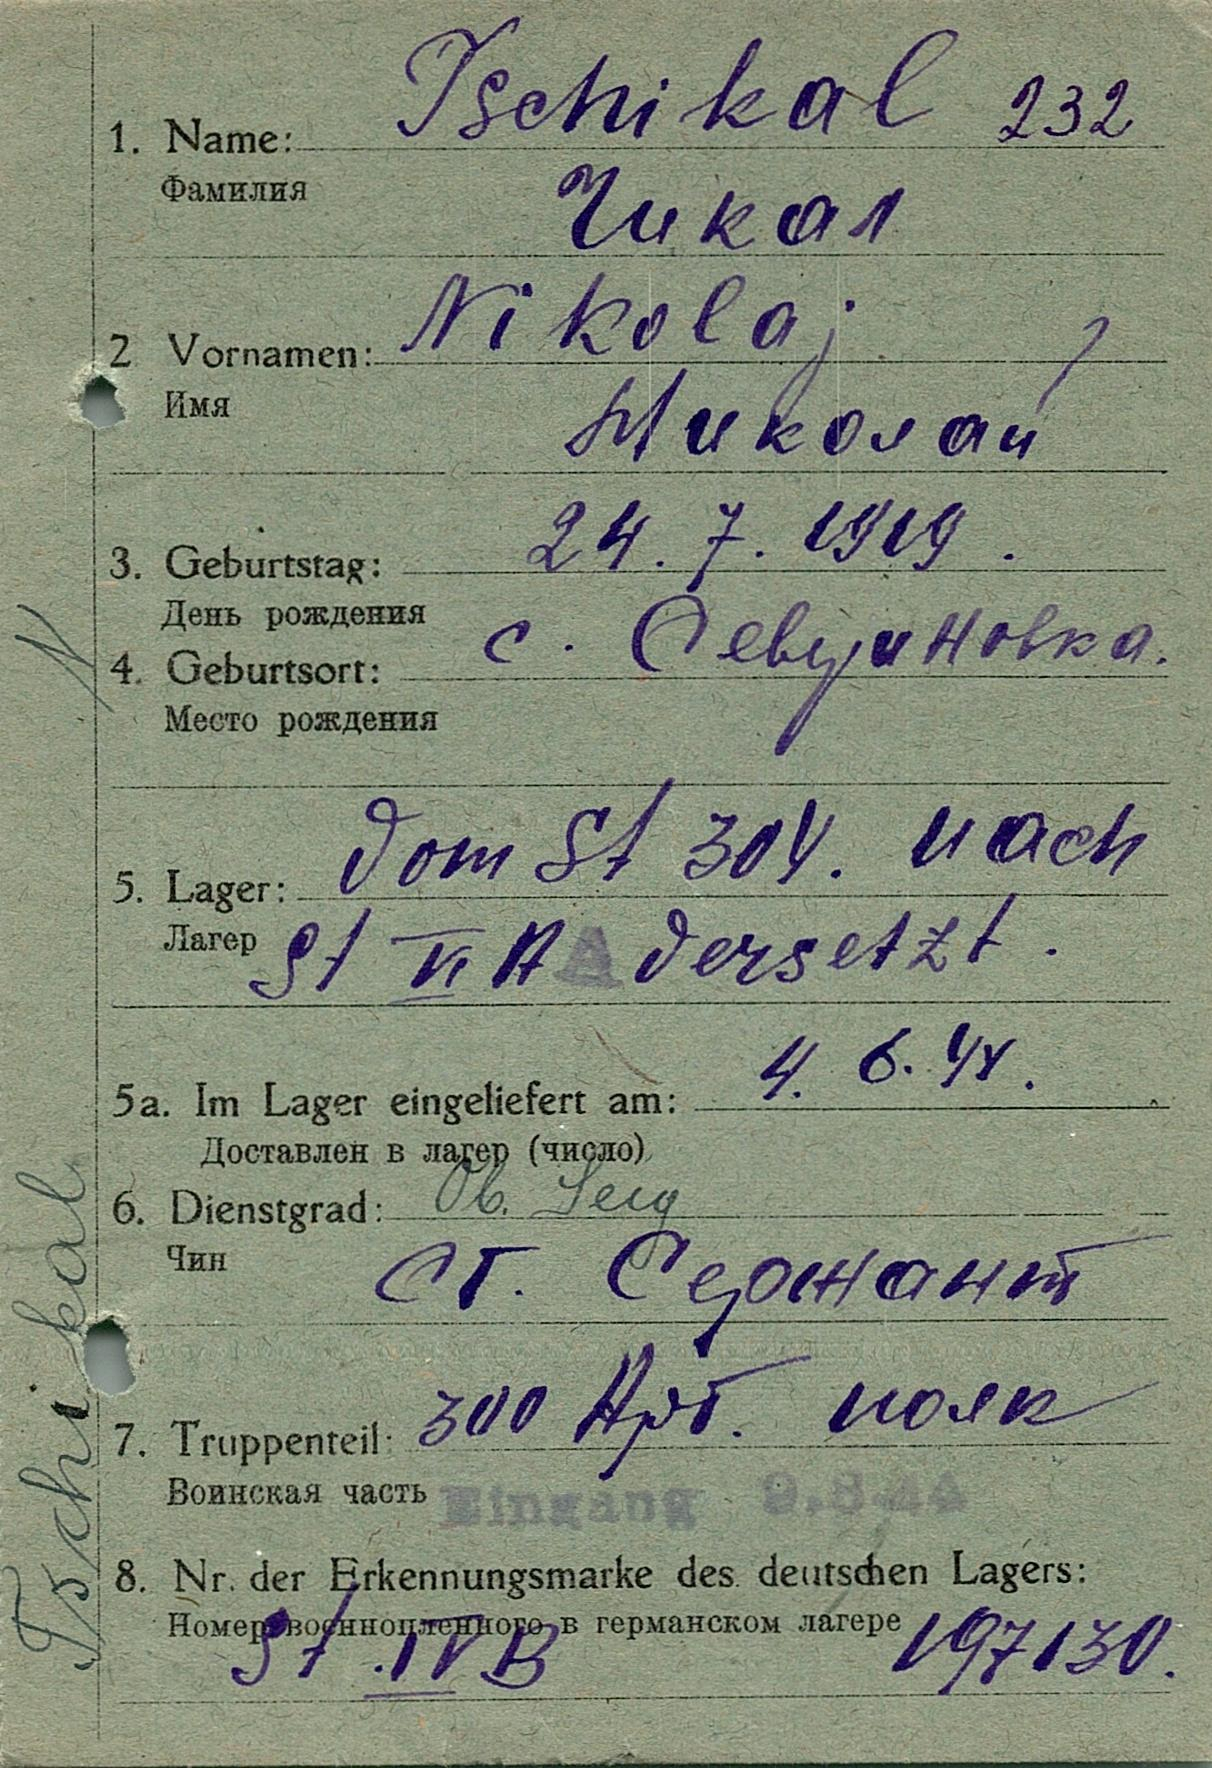 Tschikal 232
1. Name:
Фамилия
Чикал
Nikolaj
2 Vornamen:
Имя
Николай
24. 7. 1919.
3. Geburtstag:
День рождения
с. Севериновка.
4. Geburtsort:
Место рождения
Vom St 304. nach
5. Lager:
Лагер
St VI A A versetzt.
4. 6. 44.
5a. Im Lager eingeliefert am:
Доставлен в лагер (число)
Ob. Serg
6. Dienstgrad:
Чин
Ст. Сержант
300 Арт. полк
7. Truppenteil:
Воинская часть
Eingang
8. Nr. der Erkennungsmarke des deutschen Lagers:
Номер военнопленного в германском лагере
St. IV B 197130.
N
Tschikal